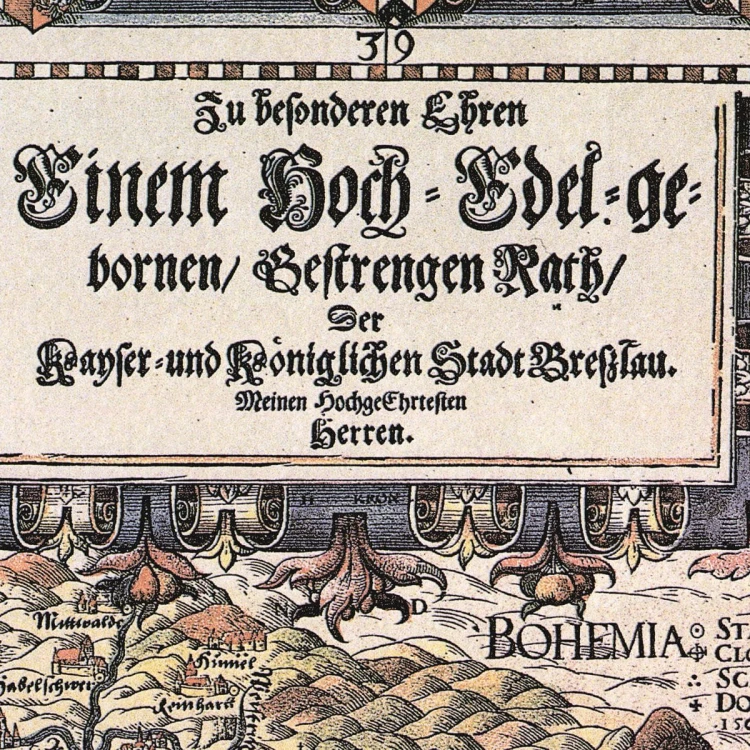 39
Zu besonderen Ehren
Einem Hoch-Edel-ge-
bornen/ Gestrengen Rath/
Der
Kayser-und Königlichen Stadt Breßlau.
Meinen HochgeEhrtesten
Herren.
KRON
N D
Mittwalde
BOHEMIA
Himmel
Habelschwer
ST
CLO
SC
DO